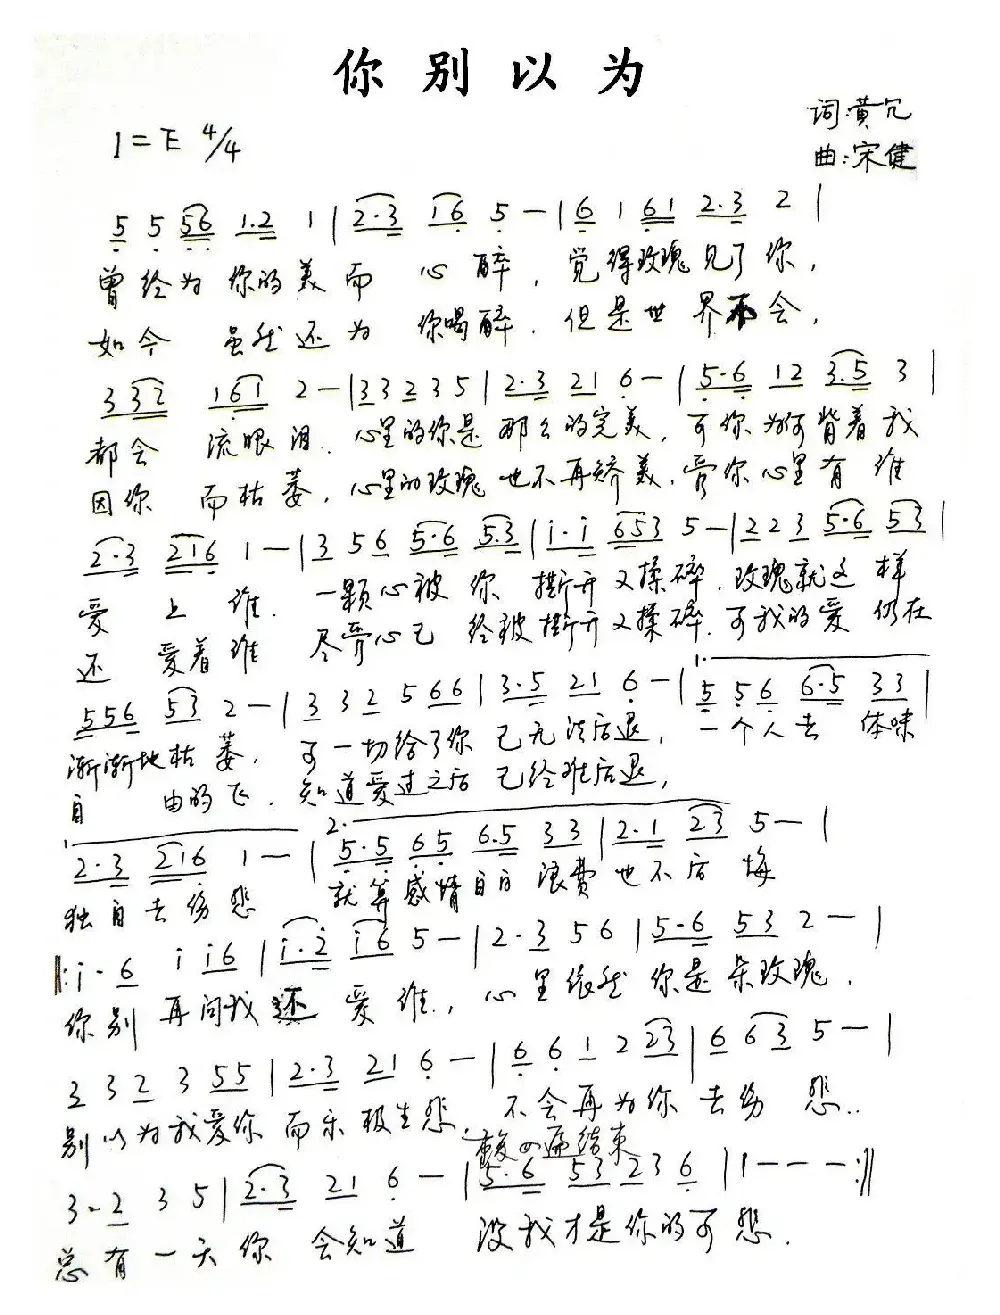 你别以为
词:黄冗
1=E 4/4
曲:宋健
5 5 56 1·2 1 | 2·3 16 5 — | 6 1 61 2·3 2 |
曾经为你的美而心醉，觉得玫瑰见了你，
如今虽然还为你喝醉．但是世界不会，
3 3 2 1 6 1 2 — | 3 3 2 3 5 | 2·3 21 6 — | 5·6 12 3·5 3 |
都会流眼泪．心里的你是那么的完美，可你为何背着我
因你而枯萎，心里的玫瑰也不再娇美．管你心里有谁
2·3 216 1 — | 3 5 6 5·6 5·3 | i·i 653 5 — | 2 2 3 5·6 53
爱上谁．一颗心被你撕开又揉碎．玫瑰就这样
还爱着谁 尽管心已经被撕开又揉碎．可我的爱仍在
556 53 2 — | 3 3 2 5 66 | 3·5 21 6 — | 1. 5 5 6 6·5 33 |
渐渐地枯萎，可一切给了你已无法后退，一个人去体味
自由的飞．知道爱过之后已经难后退，
2·3 216 1 — | 2. 5·5 65 6·5 33 | 2·1 23 5 — |
独自去伤悲 就算感情自白浪费也不后悔
‖: i· 6 i i6 | i·2 i6 5 — | 2·3 5 6 | 5·6 53 2 — |
你别再问我还爱谁，心里依然你是朵玫瑰．
3 3 2 3 55 | 2·3 21 6 — | 6 6 1 2 23 | 6 6 3 5 — |
别以为我爱你而乐极生悲．不会再为你去伤悲..
结束
3· 2 3 5 | 2·3 21 6 — | 5·6 53 23 6 | 1 - - - :‖
总有一天你会知道 没我才是你的可悲．